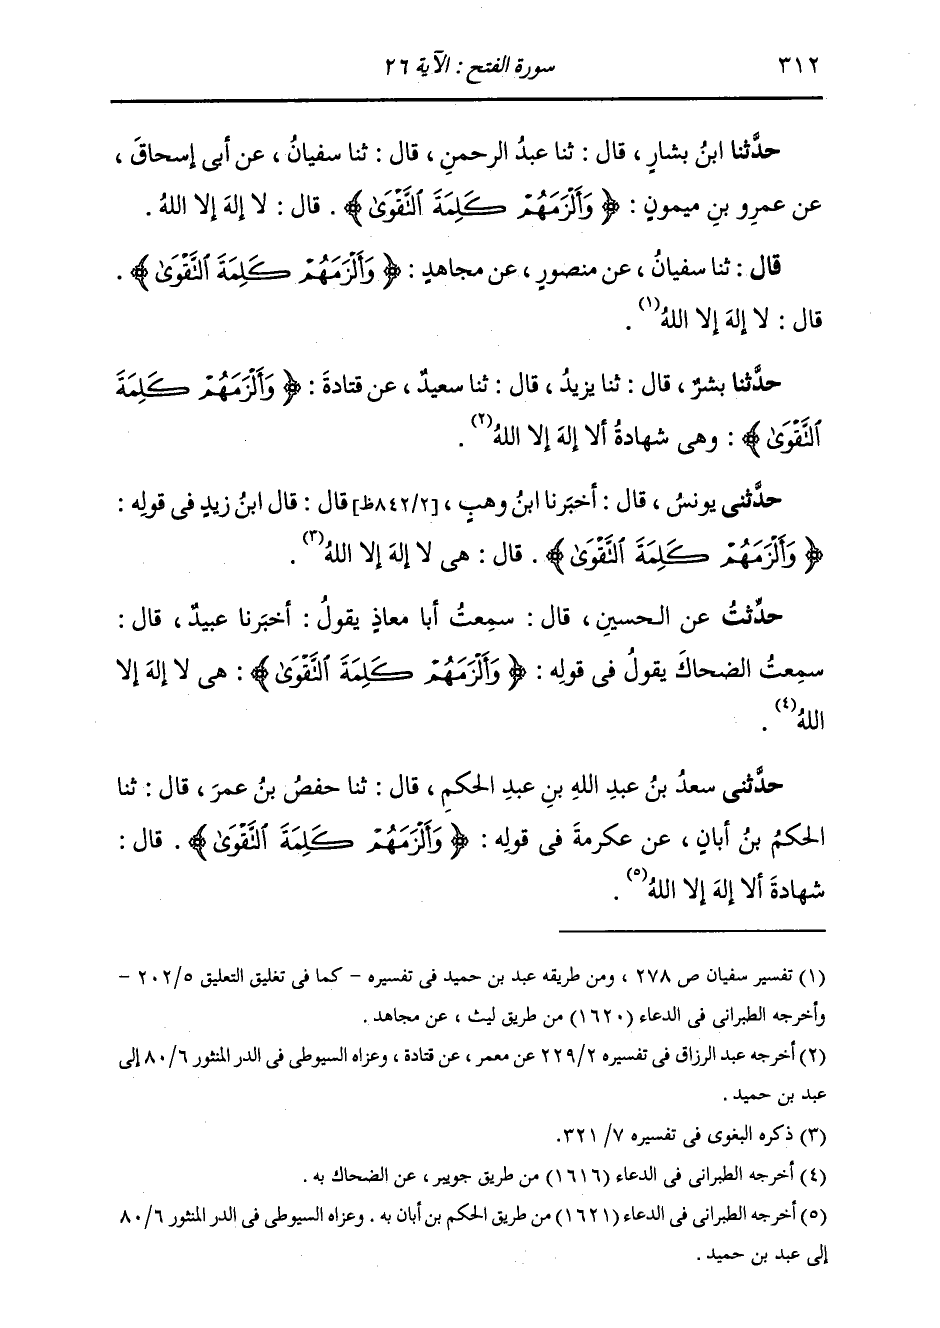 ٣١٢ سورة الفتح : الآية ٢٦
حدَّثنا ابنُ بشارٍ ، قال : ثنا عبدُ الرحمنِ ، قال : ثنا سفيانُ ، عن أبى إسحاقَ ،
عن عمرِو بنِ ميمونٍ : ﴿ وَأَلْزَمَهُمْ كَلِمَةَ ٱلنَّقْوَىٰ ﴾ . قال : لا إلهَ إلا اللهُ .
قال : ثنا سفيانُ ، عن منصورٍ ، عن مجاهدٍ : ﴿ وَأَلْزَمَهُمْ كَلِمَةَ ٱلتَّقْوَىٰ ﴾ .
قال : لا إلهَ إلا اللهُ(١) .
حدَّثنا بشرٌ ، قال : ثنا يزيدُ ، قال : ثنا سعيدٌ ، عن قتادةَ : ﴿ وَأَلْزَمَهُمْ كَلِمَةَ
ٱلتَّقْوَىٰ ﴾ : وهى شهادةُ ألا إلهَ إلا اللهُ(٢) .
حدَّثنى يونسُ ، قال : أخبَرنا ابنُ وهبٍ ، [٨٤٢/٢ظ] قال : قال ابنُ زيدٍ فى قولِه :
﴿ وَأَلْزَمَهُمْ كَلِمَةَ ٱلتَّقْوَىٰ ﴾ . قال : هى لا إلهَ إلا اللهُ(٣) .
حدِّثتُ عن الحسينِ ، قال : سمِعتُ أبا معاذٍ يقولُ : أخبَرنا عبيدٌ ، قال :
سمِعتُ الضحاكَ يقولُ فى قولِه : ﴿ وَأَلْزَمَهُمْ كَلِمَةَ ٱلتَّقْوَىٰ ﴾ : هى لا إلهَ إلا
اللهُ(٤) .
حدَّثنى سعدُ بنُ عبدِ اللهِ بنِ عبدِ الحكمِ ، قال : ثنا حفصُ بنُ عمرَ ، قال : ثنا
الحكمُ بنُ أبانٍ ، عن عكرمةَ فى قولِه : ﴿ وَأَلْزَمَهُمْ كَلِمَةَ ٱلتَّقْوَىٰ ﴾ . قال :
شهادةَ ألا إلهَ إلا اللهُ(٥) .
(١) تفسير سفيان ص ٢٧٨ ، ومن طريقه عبد بن حميد فى تفسيره – كما فى تغليق التعليق ٢٠٢/٥ –
وأخرجه الطبرانى فى الدعاء (١٦٢٠) من طريق ليث ، عن مجاهد .
(٢) أخرجه عبد الرزاق فى تفسيره ٢٢٩/٢ عن معمر ، عن قتادة ، وعزاه السيوطى فى الدر المنثور ٨٠/٦ إلى
عبد بن حميد .
(٣) ذكره البغوى فى تفسيره ٧/ ٣٢١.
(٤) أخرجه الطبرانى فى الدعاء (١٦١٦) من طريق جويبر ، عن الضحاك به .
(٥) أخرجه الطبرانى فى الدعاء (١٦٢١) من طريق الحكم بن أبان به . وعزاه السيوطى فى الدر المنثور ٨٠/٦
إلى عبد بن حميد .